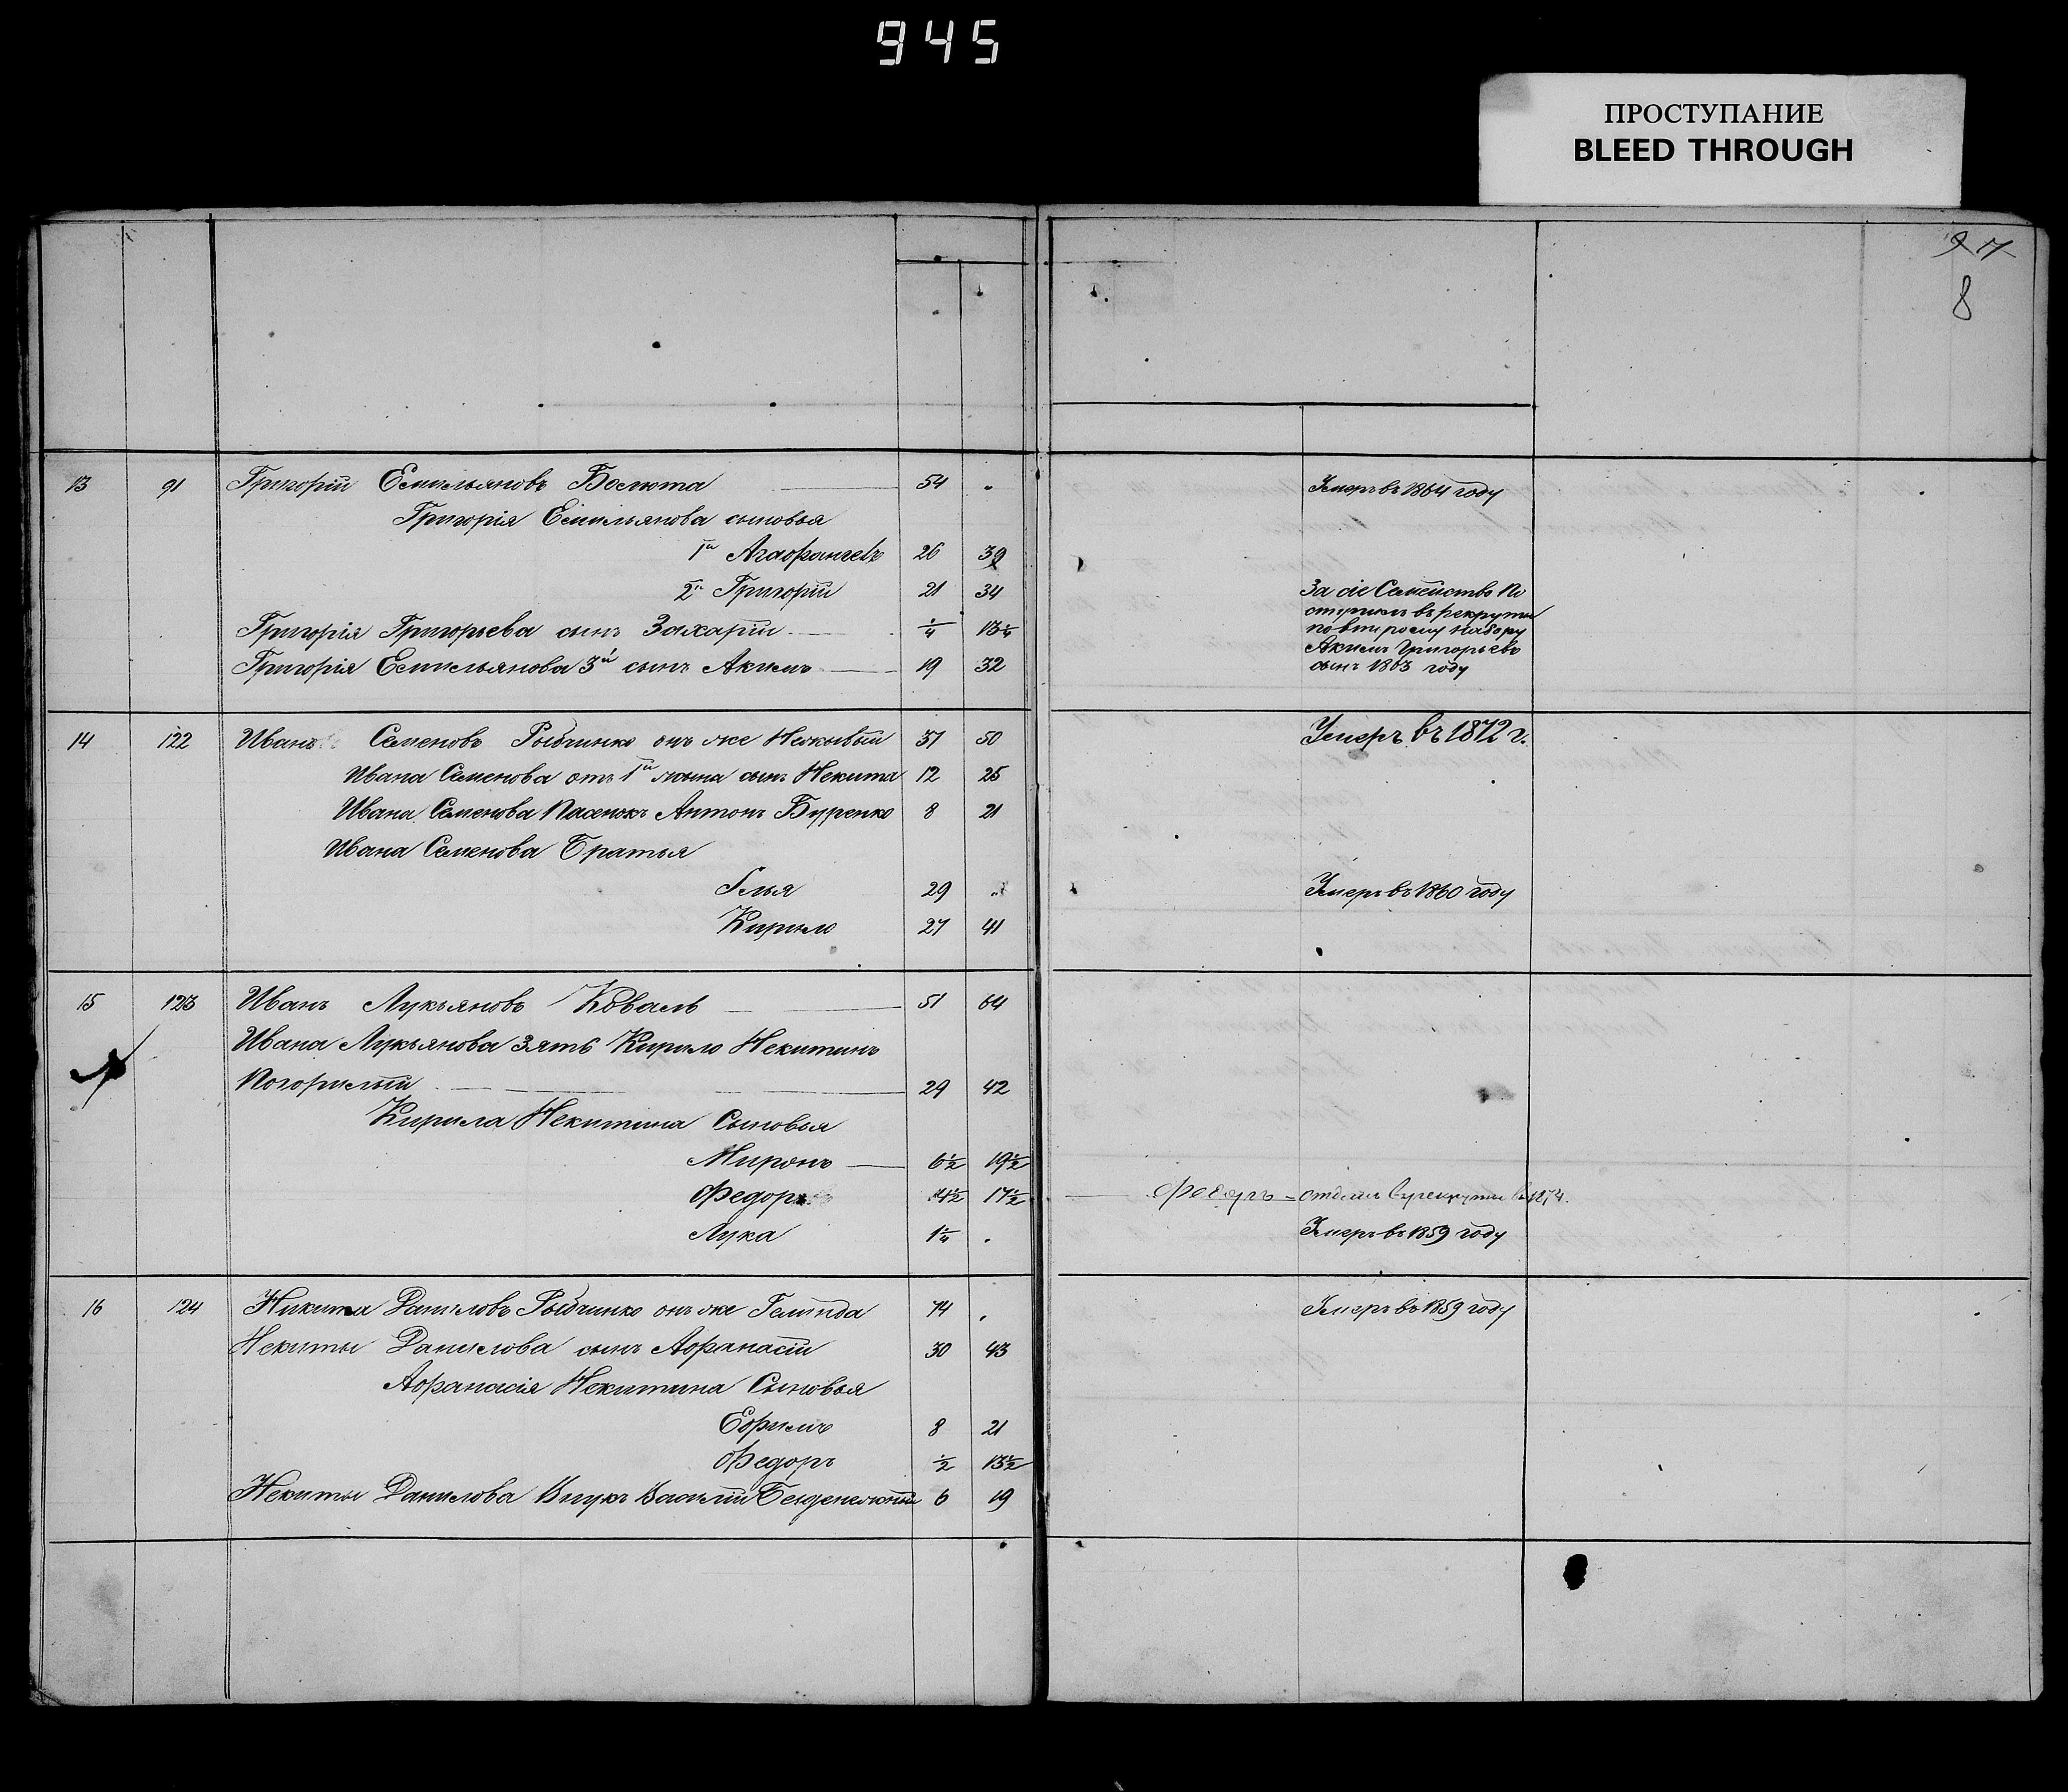 945
ПРОСТУПАНИЕ
BLEED THROUGH
8
13 91 Григорій Емильяновъ Босюта 54 . Умеръ въ 1864 году
Григорія Емильянова сыновья
1й Агафангелъ 26 39
2й Григорій 21 34 За сіе Семейство По
ступилъ въ рекруты
Григорія Григорьева сынъ Захарій ¼ 13¼ по второму набору
Акимъ Григорьевъ
Григорія Емильянова 3й сынъ Акимъ 19 32 сынъ 1863 году
14 122 Иванъ Семеновъ Рыбчинко онъ же Неживый 37 50 Умеръ въ 1872 г.
Ивана Семенова отъ 1й жены сынъ Некита 12 25
Ивана Семенова Пасенокъ Антонъ Буренко 8 21
Ивана Семенова Братья
Илья 29 Умеръ въ 1860 году
Кирило 27 41
15 123 Иванъ Лукьяновъ Коваль 51 64
Ивана Лукьянова Зять Кирило Некитинъ
Погорилый 29 42
Кирила Некитина Сыновья
Миронъ 6½ 19½
Федоръ 4½ 17½ Федоръ – отданъ в рекруты в 1874.
Лука 1¼ . Умеръ въ 1859 году
16 124 Никита Даниловъ Рыбчинко онъ же 74 . Умеръ въ 1859 году
Некиты Данилова сынъ Афанасій 30 43
Афанасія Некитина Сыновья
Ефимъ 8 21
Федоръ ½ 13½
Некиты Данилова Внукъ Василій Безденежный 6 19